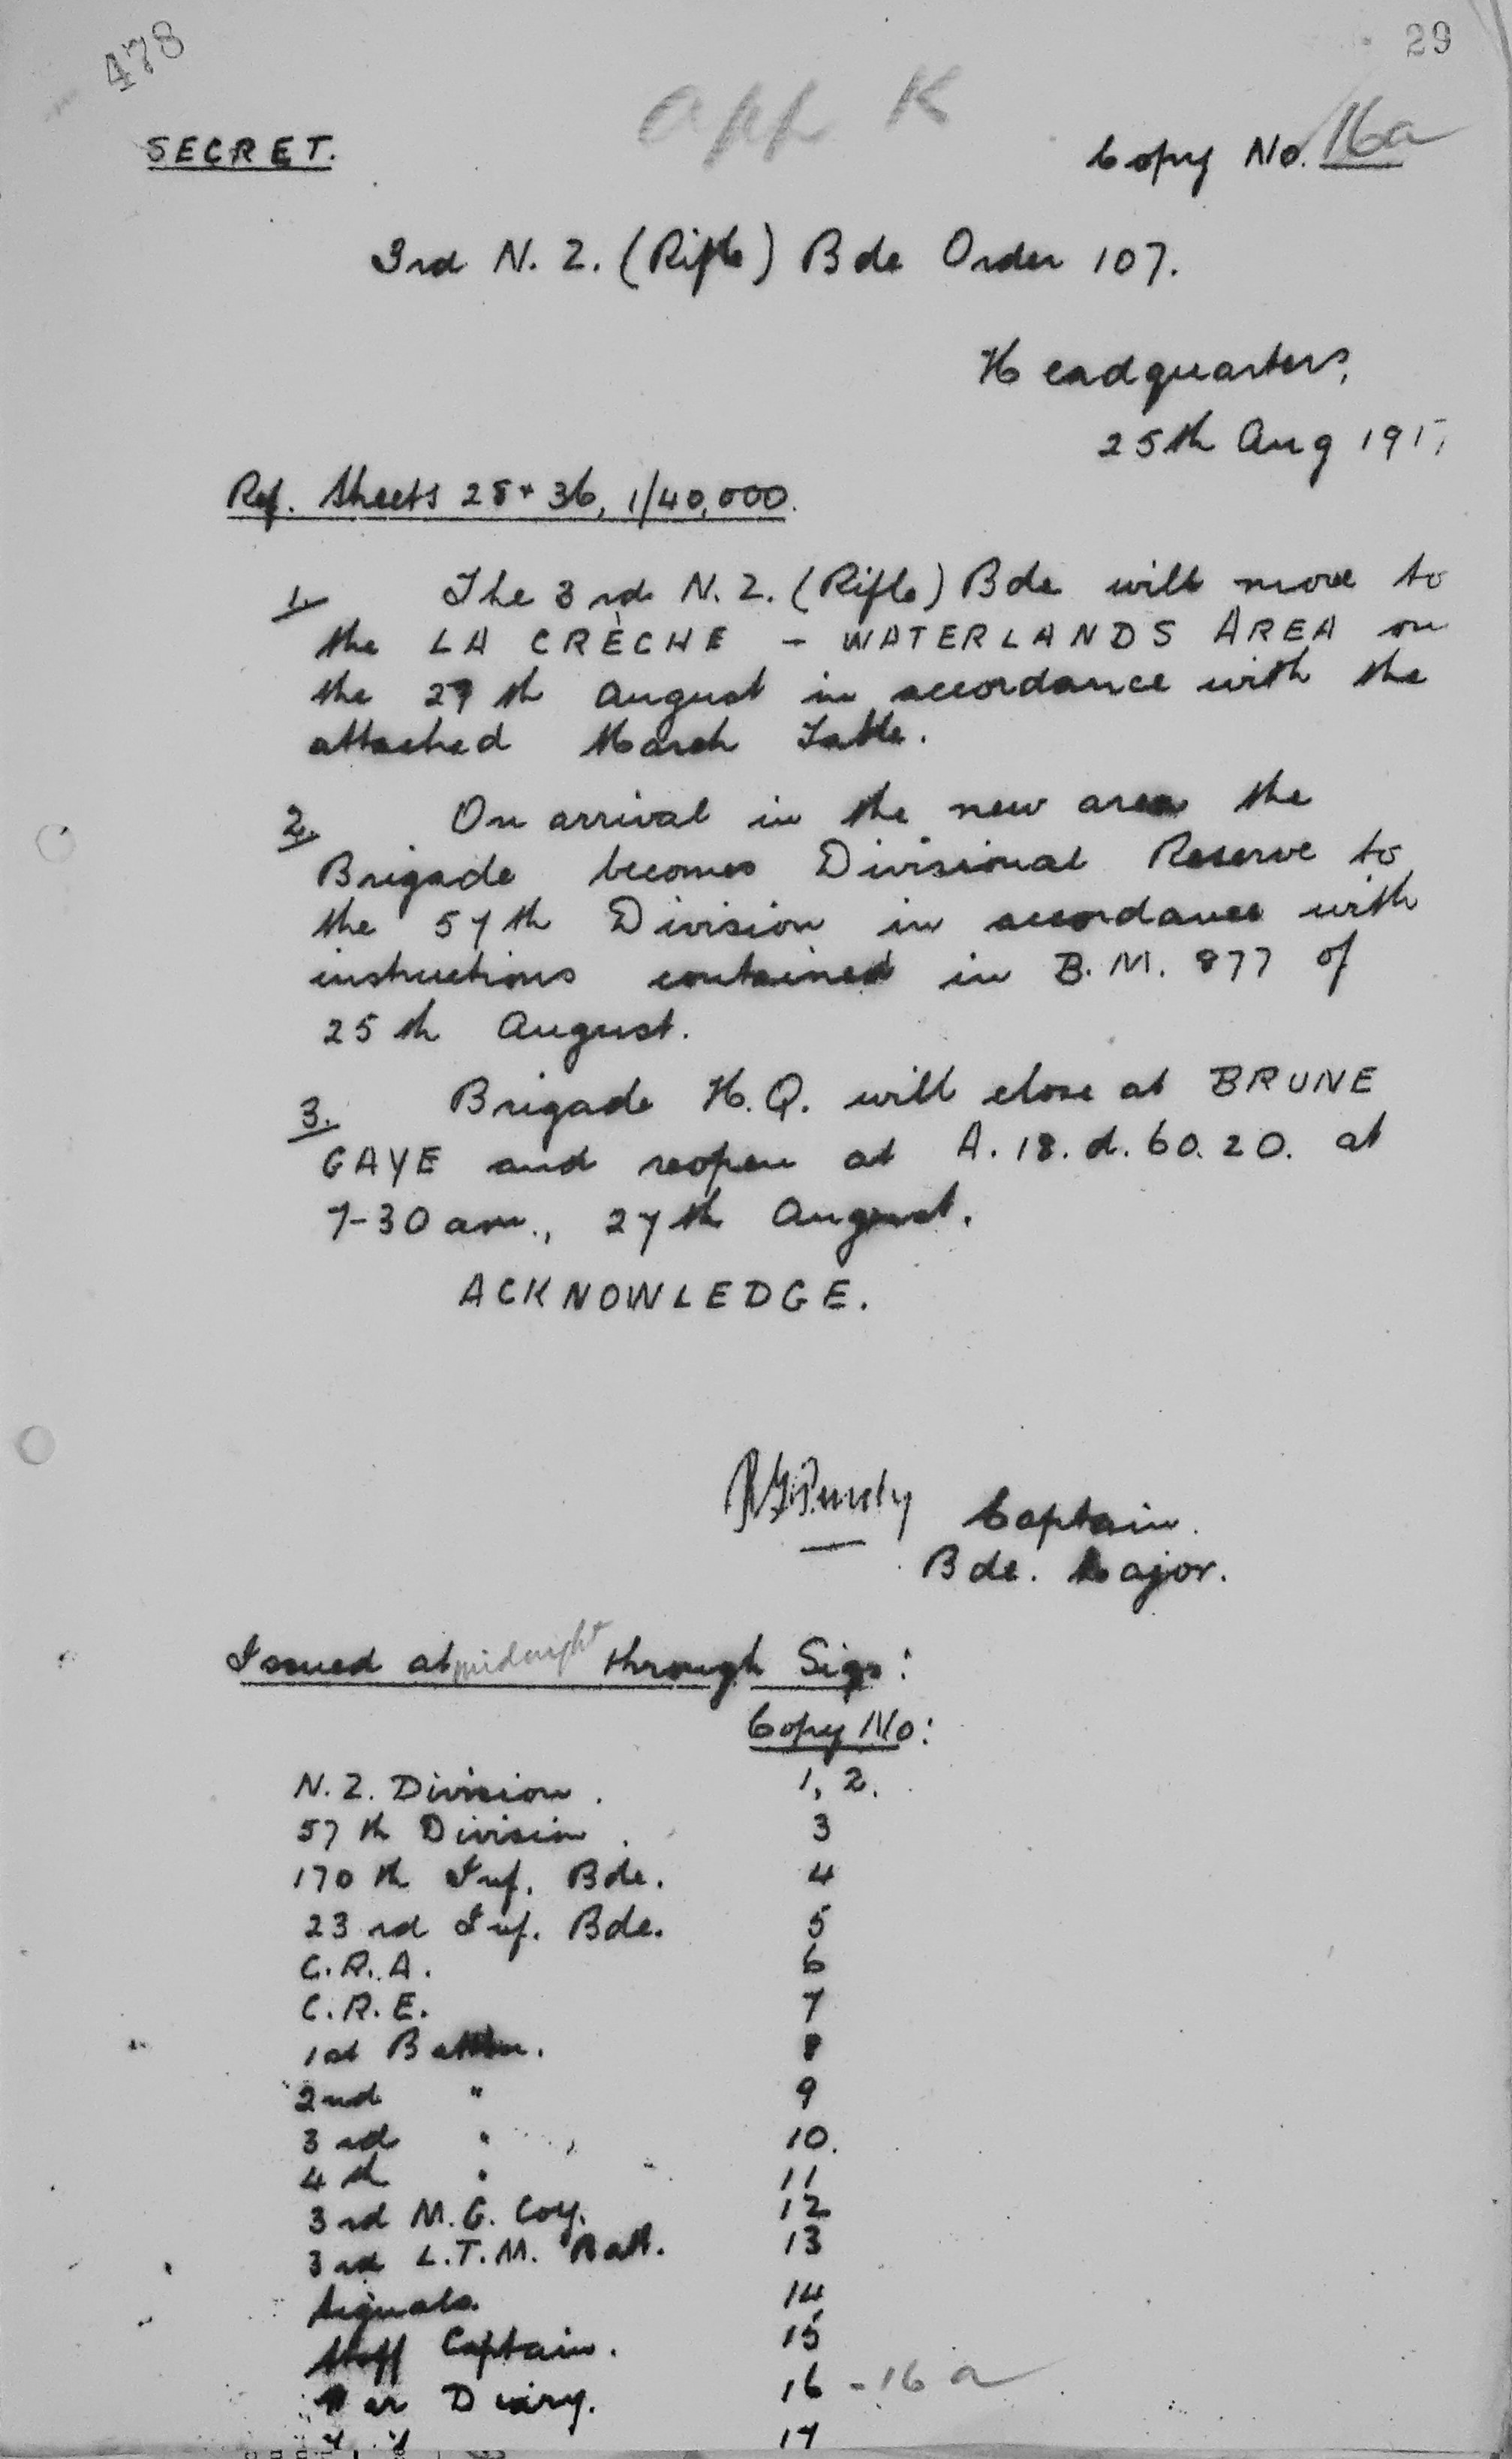 478
29
app K
SECRET.
Copy No. 16a
3rd N. Z. (Rifle) Bde Order 107.
Headquarters,
25th Aug 191
Ref. Sheets 28 + 36, 1/40,000.
1. The 3rd N. Z. (Rifle) Bde will move to
the LA CRÈCHE - WATERLANDS AREA on
the 27th August in accordance with the
attached March Table.
2. On arrival in the new area the
Brigade becomes Divisional Reserve to
the 57th Division in accordance with
instructions contained in B. M. 877 of
25th August.
3. Brigade H. Q. will close at BRUNE
GAYE and reopen at A. 18. d. 60. 20. at
7-30 am., 27th August.
ACKNOWLEDGE.
Captain.
Bde. Major.
Issued at midnight through Sigs:
Copy No:
N. Z. Division. 1, 2.
57th Division. 3
170th Inf. Bde. 4
23rd Inf. Bde. 5
C. R. A. 6
C. R. E. 7
1st Battn. 8
2nd " 9
3rd " 10.
4th " 11
3rd M. G. Coy. 12
3rd L. T. M. Batt. 13
Signals. 14
Staff Captain. 15
War Diary. 16 - 16a
" " 17